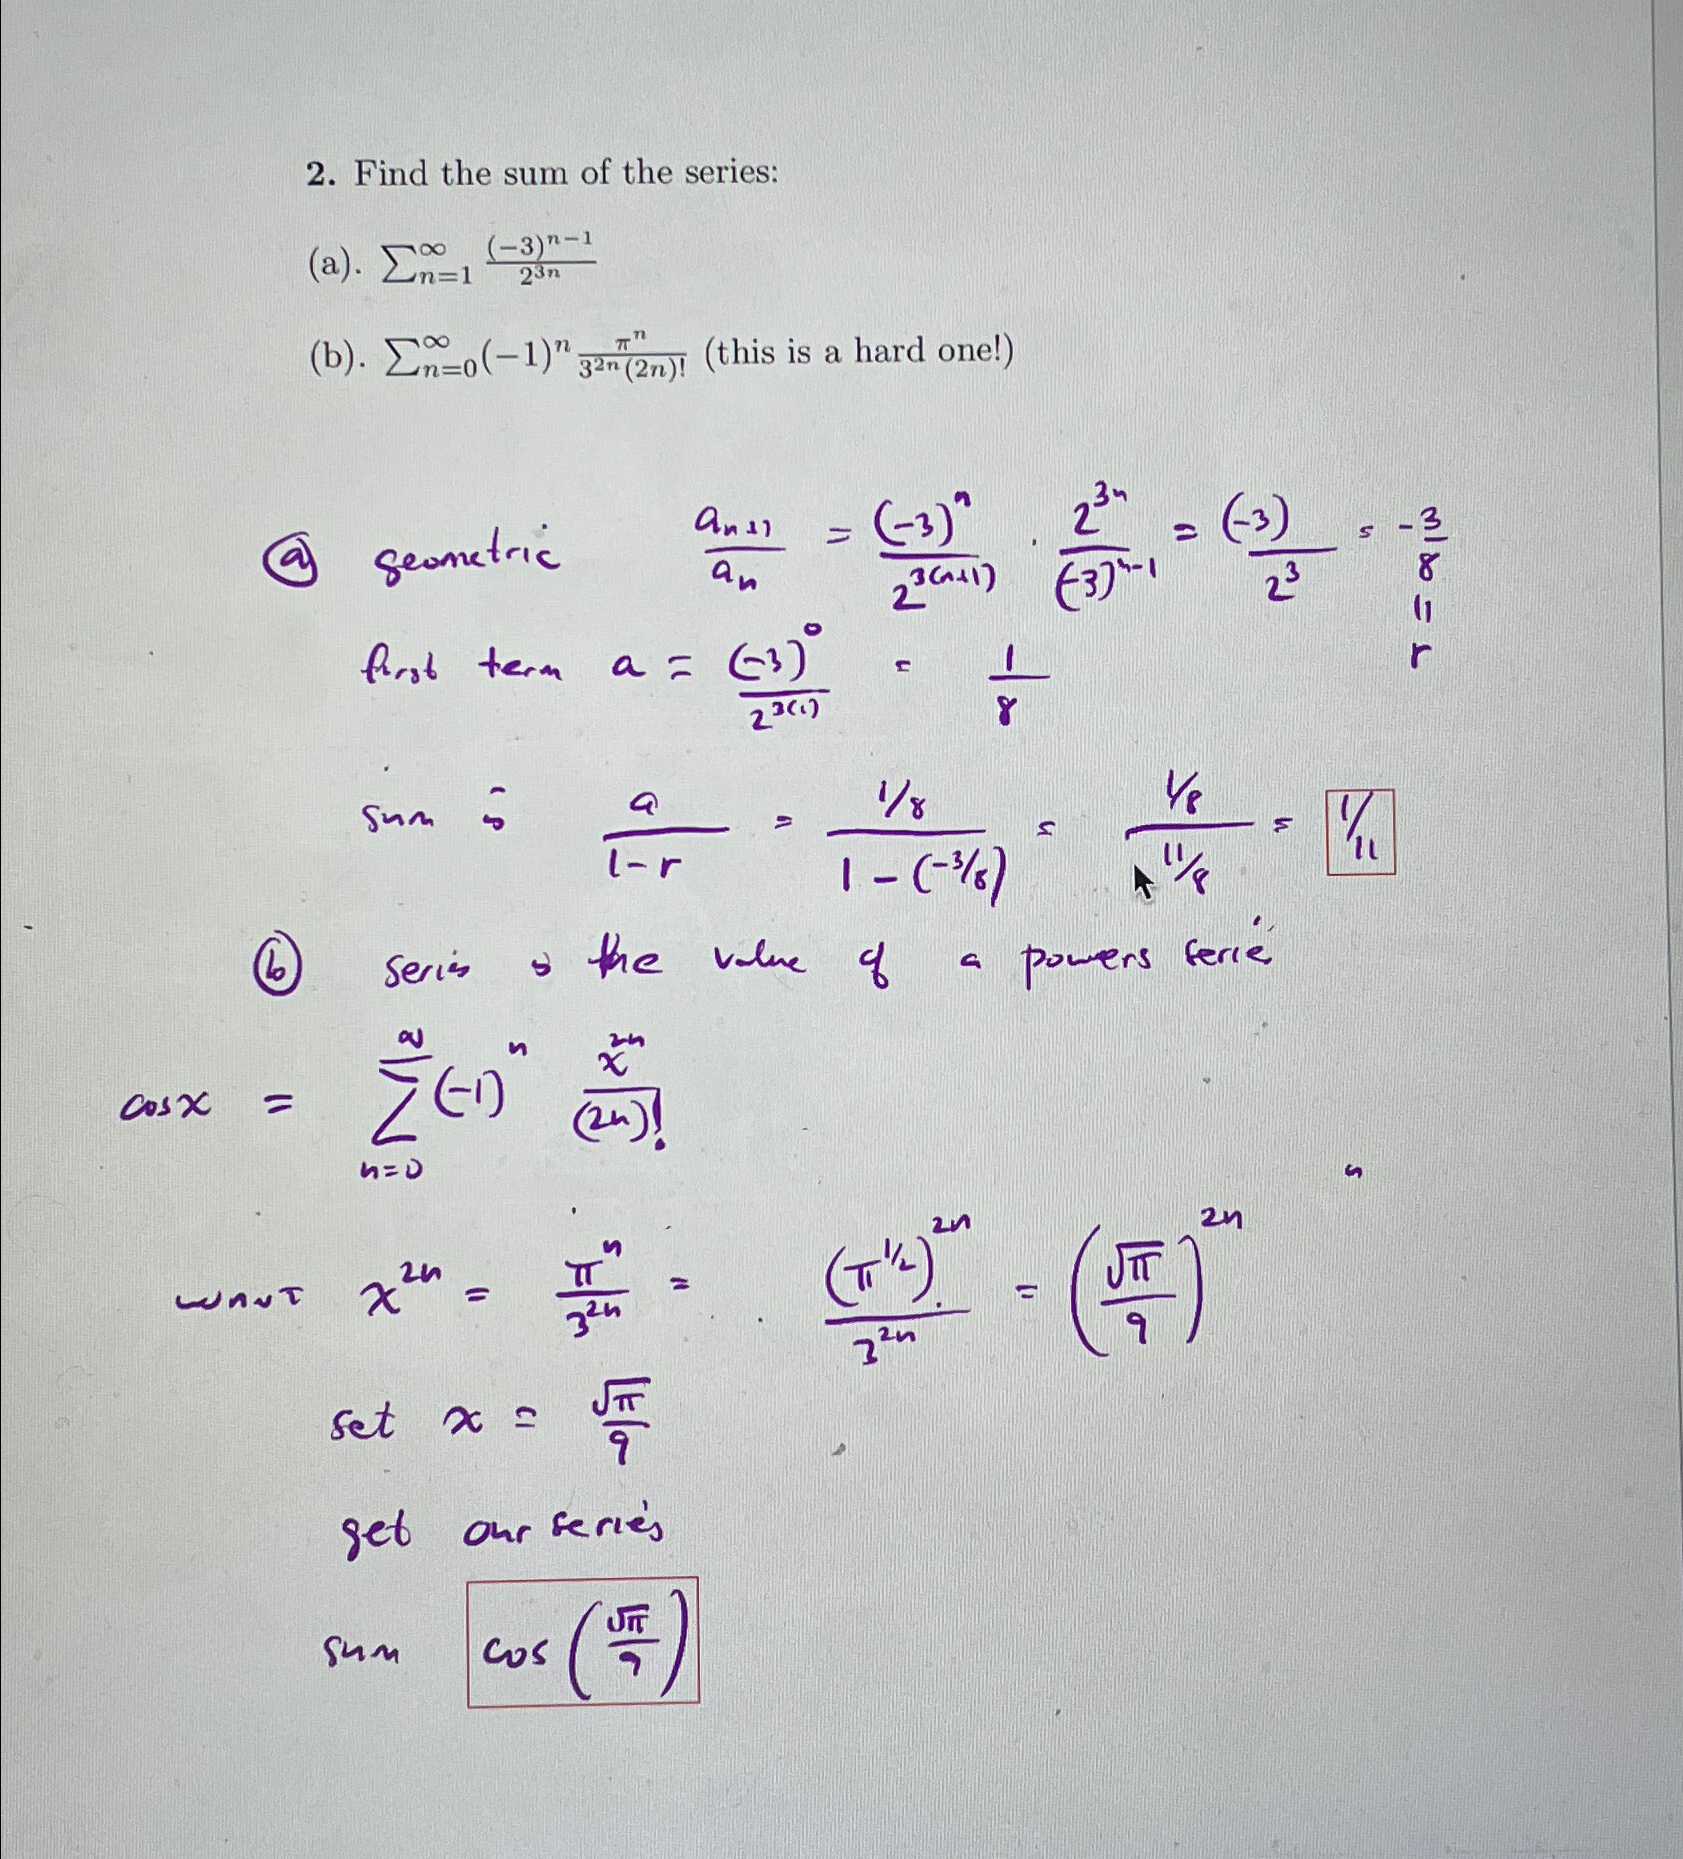 2. Find the sum of the series:
(a). ∑_{n=1}^{∞} (-3)^{n-1}/2^{3n}
(b). ∑_{n=0}^{∞}(-1)^n π^n/(3^{2n}(2n)!) (this is a hard one!)
ⓐ geometric a_{n+1}/a_n = (-3)^n/2^{3(n+1)} · 2^{3n}/(-3)^{n-1} = (-3)/2^3 = -3/8
=
r
first term a = (-3)^0/2^{3(1)} = 1/8
sum is a/(1-r) = (1/8)/(1-(-3/8)) = (1/8)/(11/8) = 1/11
ⓑ series is the value of a powers series
cosx = ∑_{n=0}^{∞} (-1)^n x^{2n}/(2n)!
n
WANT x^{2n} = π^n/3^{2n} = (π^{1/2})^{2n}/3^{2n} = (√π/9)^{2n}
set x = √π/9
get our series
sum cos(√π/9)